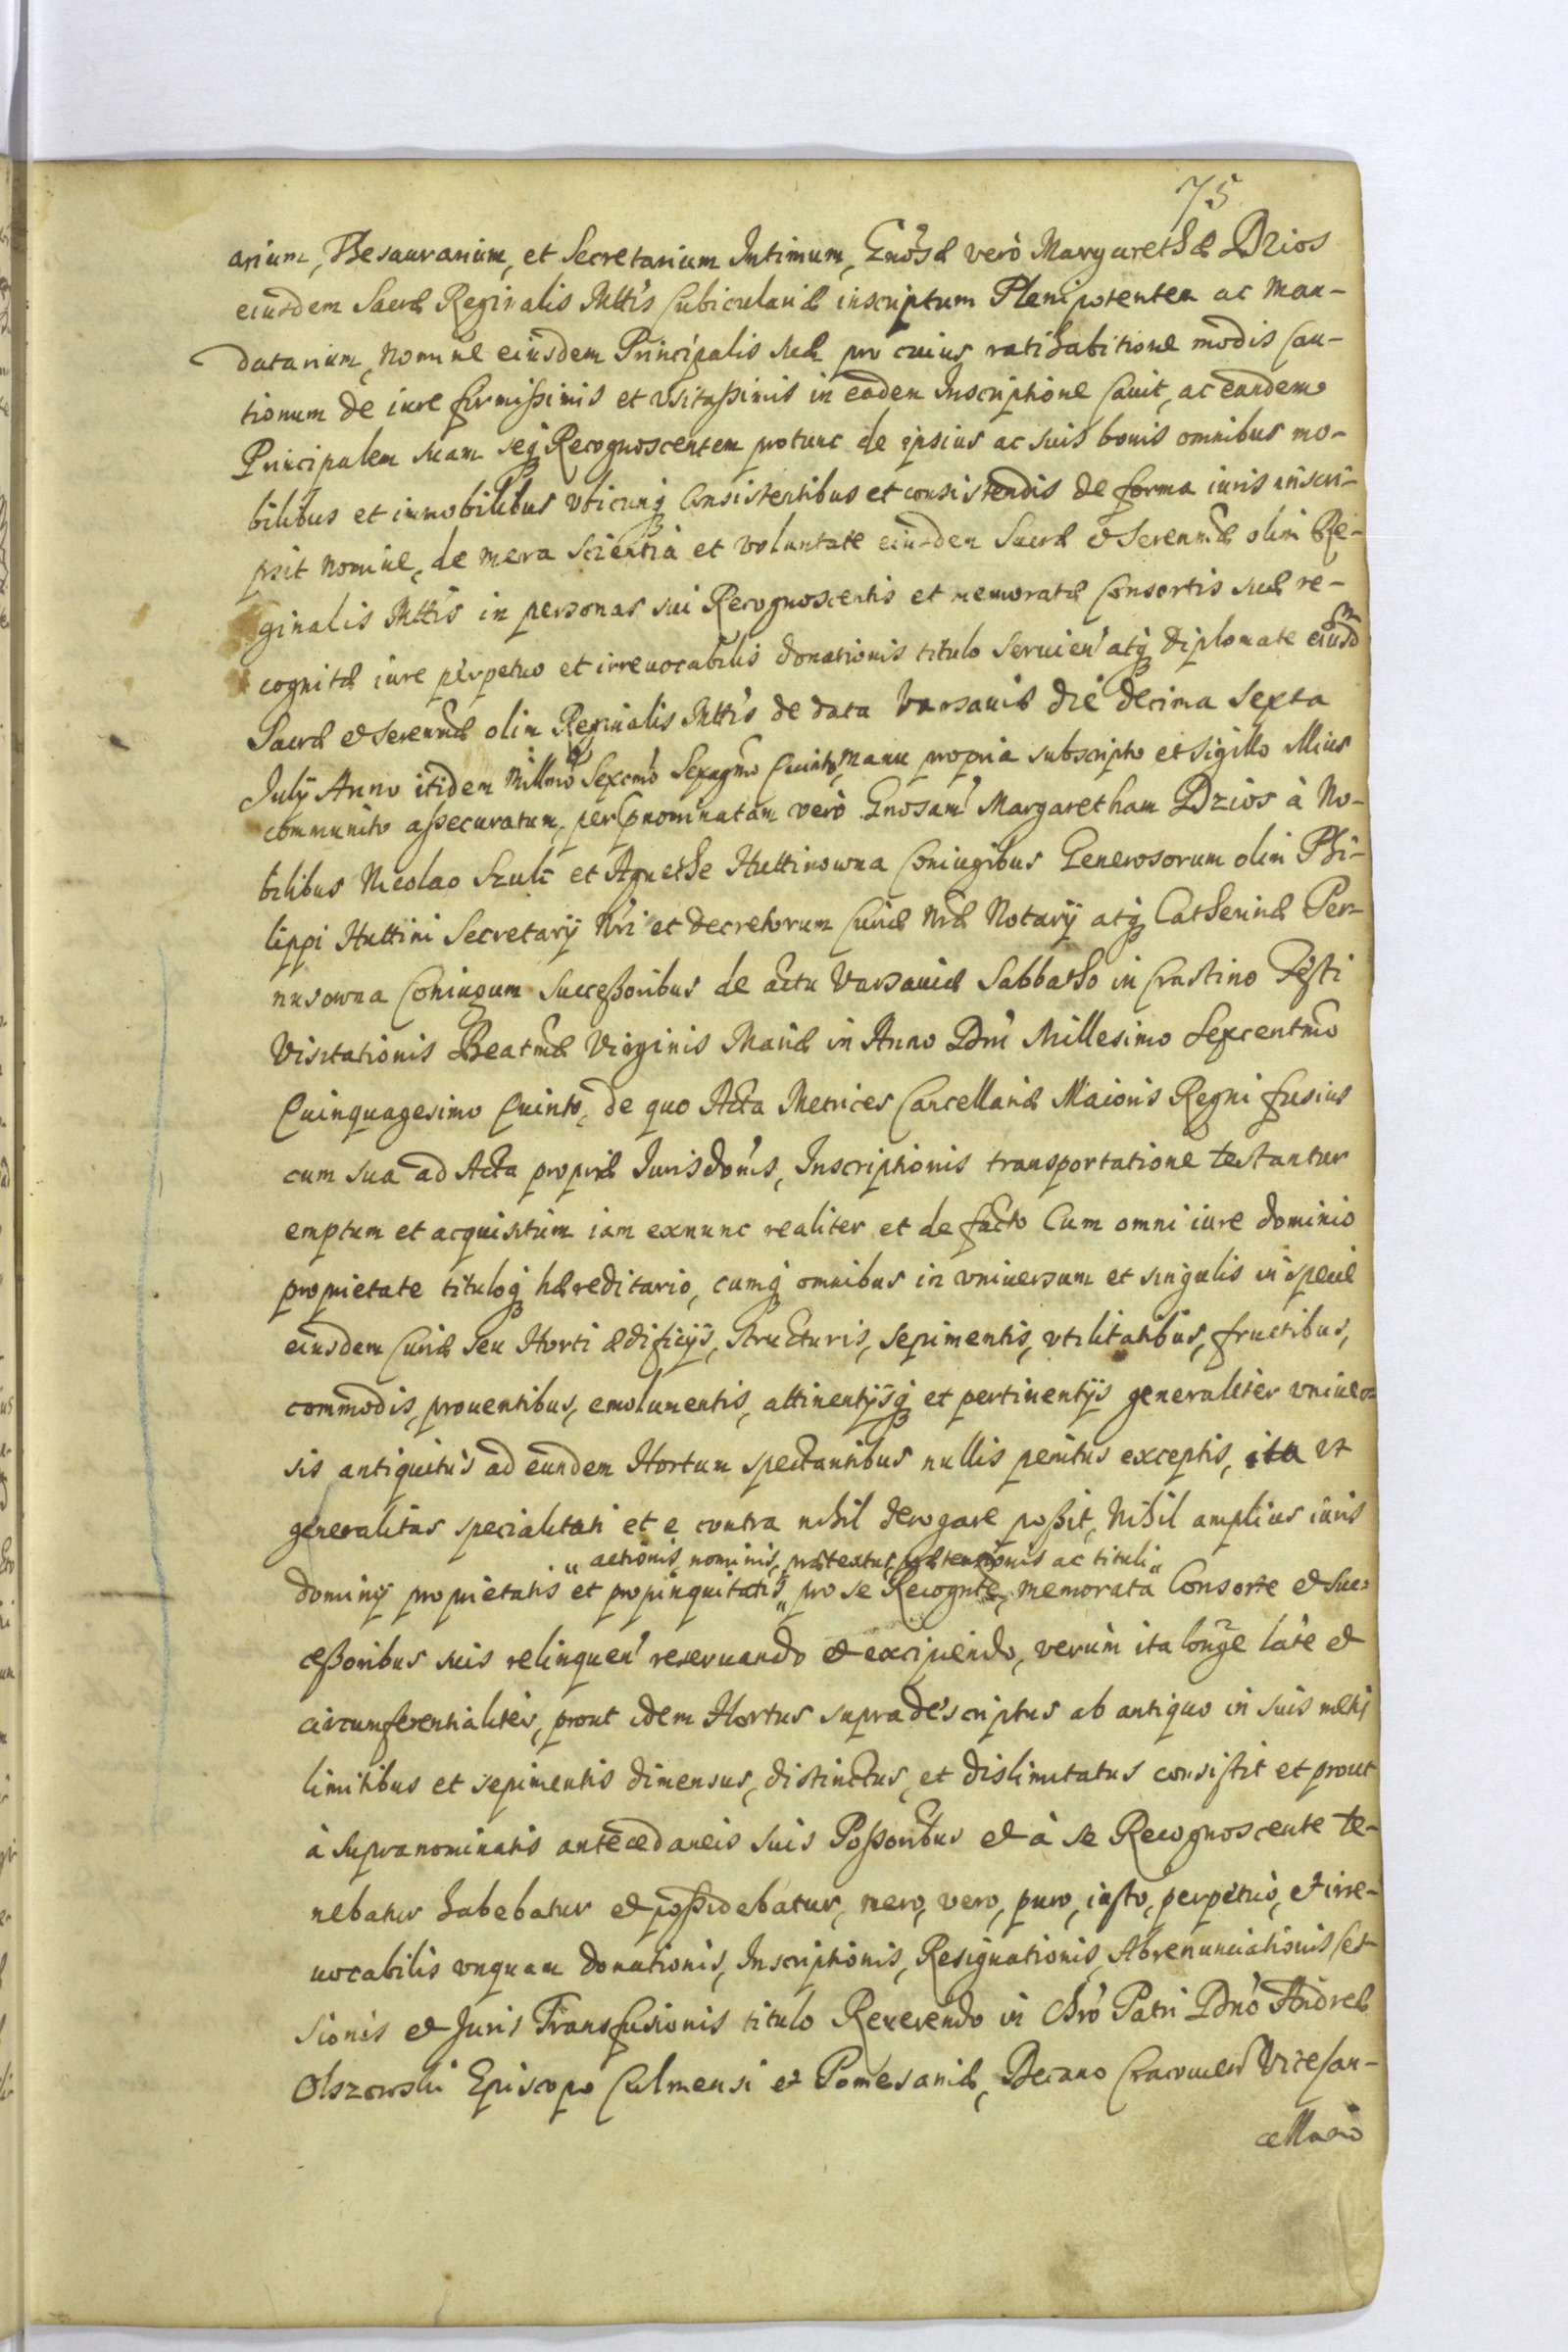 75
arium, Thesaurarium, et Secretarium Intimum, Gnosæ verò Margarethæ Dzios
eiusdem Sacræ Reginalis Mttis Cubiculariæ inscriptum Plenipotentem ac Man-
datarium, nomine eiusdem Principalis suæ pro cuius ratihabitione modis Cau-
tionum de iure firmißimis et vsitaßimis in eadem Inscriptione Cauit, ac eandem
Principalem suam seq Recognoscentem protunc de ipsius ac suis bonis omnibus mo-
bilibus et immobilibus vbicunq Consistentibus et consistendis de forma iuris inscri-
psit nomine, de mera scientia et voluntate eiusdem Sacræ et Serenmæ olim Re-
ginalis Mttis in personas sui Recognoscentis et memoratæ Consortis suæ re-
cognitæ iure perpetuo et irreuocabilis donationis titulo seruien' atq Diplomate eiusdm
Sacræ et Serenmæ olim Reginalis Mttis de data Varsauiæ die decima Sexta
July Anno itidem Millmo Sexcmo Sexagmo Quinto, manu propria subscripto et sigillo illius
communito aßecuratum, per prnominatam verò Gnosam Margaretham Dzios à No-
bilibus Nicolao Szulc et Agnethe Huttinowna Coniugibus Generosorum olim Phi-
lippi Huttini Secretarÿ Nri et decretorum Curiæ Nræ Notarÿ atq Catherinæ Per-
nusowna Coniugum Succeßoribus de actu Varsauiæ Sabbatho in Crastino Festi
Visitationis Beatmæ Virginis Mariæ in Anno Dni Millesimo Sexcentmo
Quinquagesimo Quinto, de quo Acta Metrices Cancellariæ Maioris Regni fusius
cum sua ad Acta propriæ Jurisdonis, Inscriptionis transportatione testantur
emptum et acquisitum iam exnunc realiter et de facto Cum omni iure dominio
proprietate tituloq hæreditario, cumq omnibus in vniuersum et singulis in specie
eiusdem Curiæ seu Horti ædificijs, structuris, sepimentis, vtilitatibus, fructibus,
commodis, prouentibus, emolumentis, attinentijsq et pertinentijs generaliter vniuer-
sis antiquitùs ad eundem Hortum spectantibus nullis penitus exceptis, ita vt
generalitas specialitati et e contra nihil derogare poßit, Nihil amplius iuris
" actionis, nominis, prætextus, prætensionis ac tituli "
dominÿ proprietatis et propinquitatis " pro se Recognte, memorata Consorte et Suc-
ceßoribus suis relinquen' reseruando et excipiendo, verùm ita longe late et
circumferentialiter, prout idem Hortus supradescriptus ab antiquo in suis metis
limitibus et sepimentis dimensus, distinctus, et dislimitatus consistit et prout
à supranominatis antecedaneis suis Poßoribus et à se Recognoscente te-
nebatur habebatur et poßidebatur, mero, vero, puro, iusto, perpetuò, et irre-
uocabilis vnquam donationis, Inscriptionis, Resignationis, Abrenunciationis Ces-
sionis et Juris Transfusionis titulo Reverendo in Chro Patri Dno Andreæ
Olszowski Episcopo Culmensi et Pomesaniæ, Decano Cracouien' Vicecan-
cellario